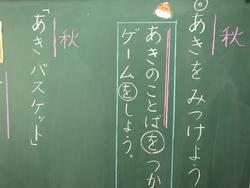 ◎あきを みつけよう
秋
あきのことばをつか
ゲームをしよう。
秋
「あきバスケット」